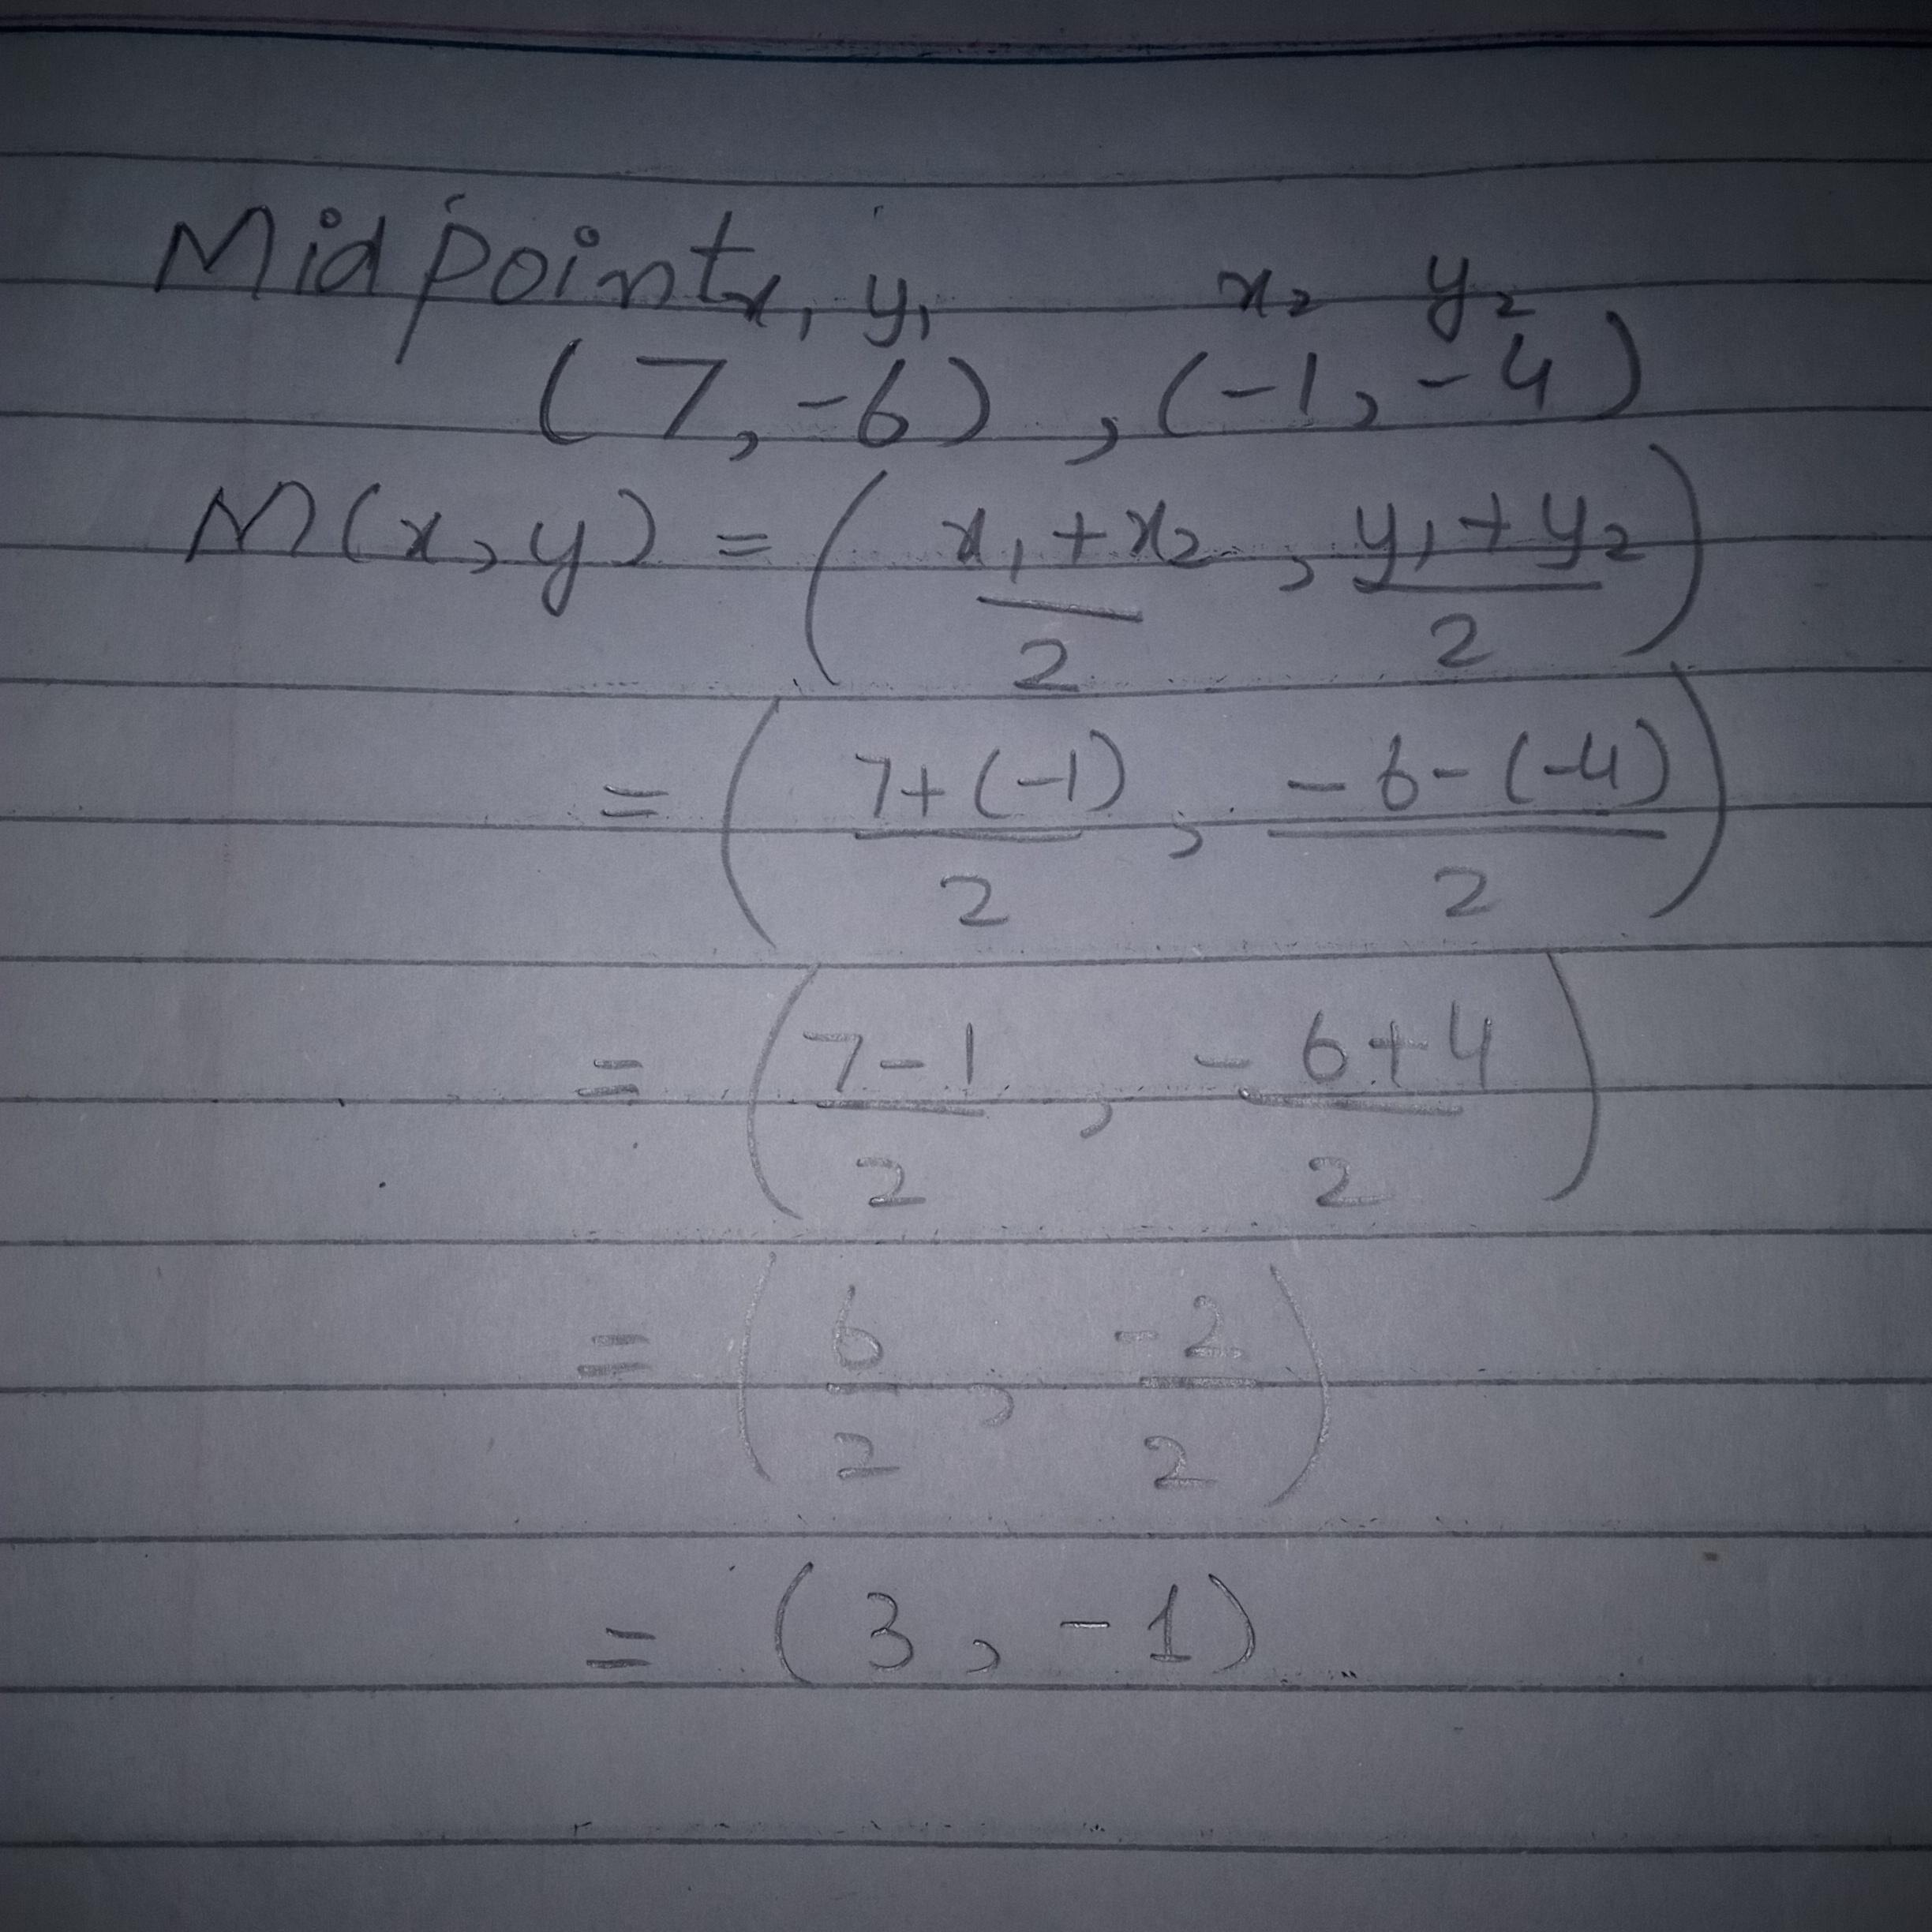 Midpoint x₁ y₁ x₂ y₂
(7, -6) , (-1, -4)
M(x, y) = ( x₁ + x₂ / 2 , y₁ + y₂ / 2 )
= ( 7 + (-1) / 2 , - 6 - (-4) / 2 )
= ( 7 - 1 / 2 , - 6 + 4 / 2 )
= ( 6 / 2 , -2 / 2 )
= (3, -1)